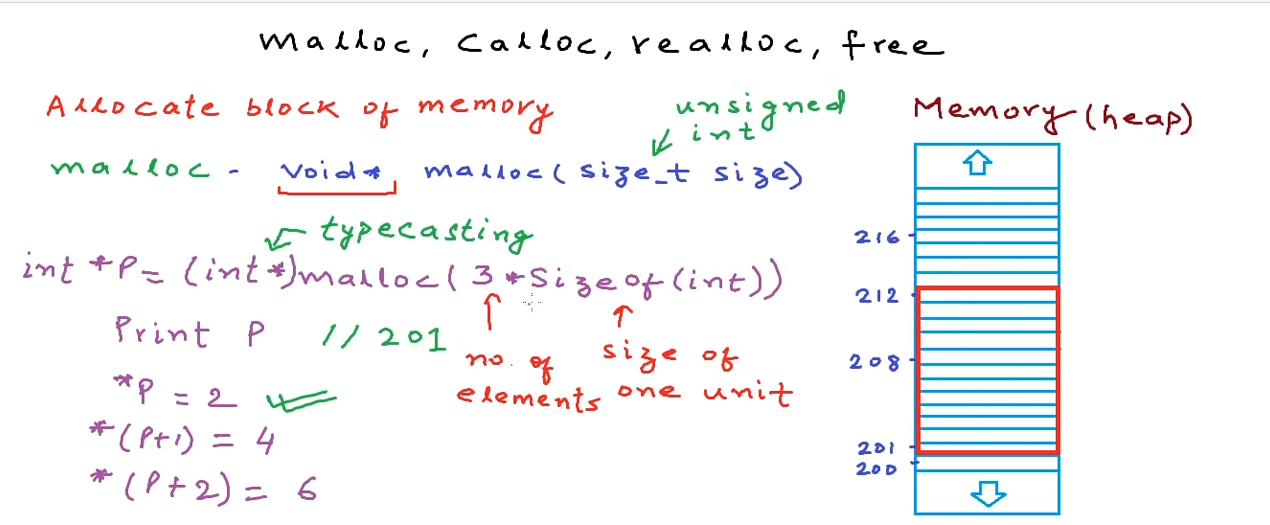 malloc, calloc, realloc, free
Allocate block of memory
unsigned
int
malloc - void* malloc(size_t size)
typecasting
int *P = (int*)malloc(3*Sizeof(int))
Print P // 201
no. of
elements
size of
one unit
*P = 2
*(P+1) = 4
*(P+2) = 6
Memory (heap)
216
212
208
201
200